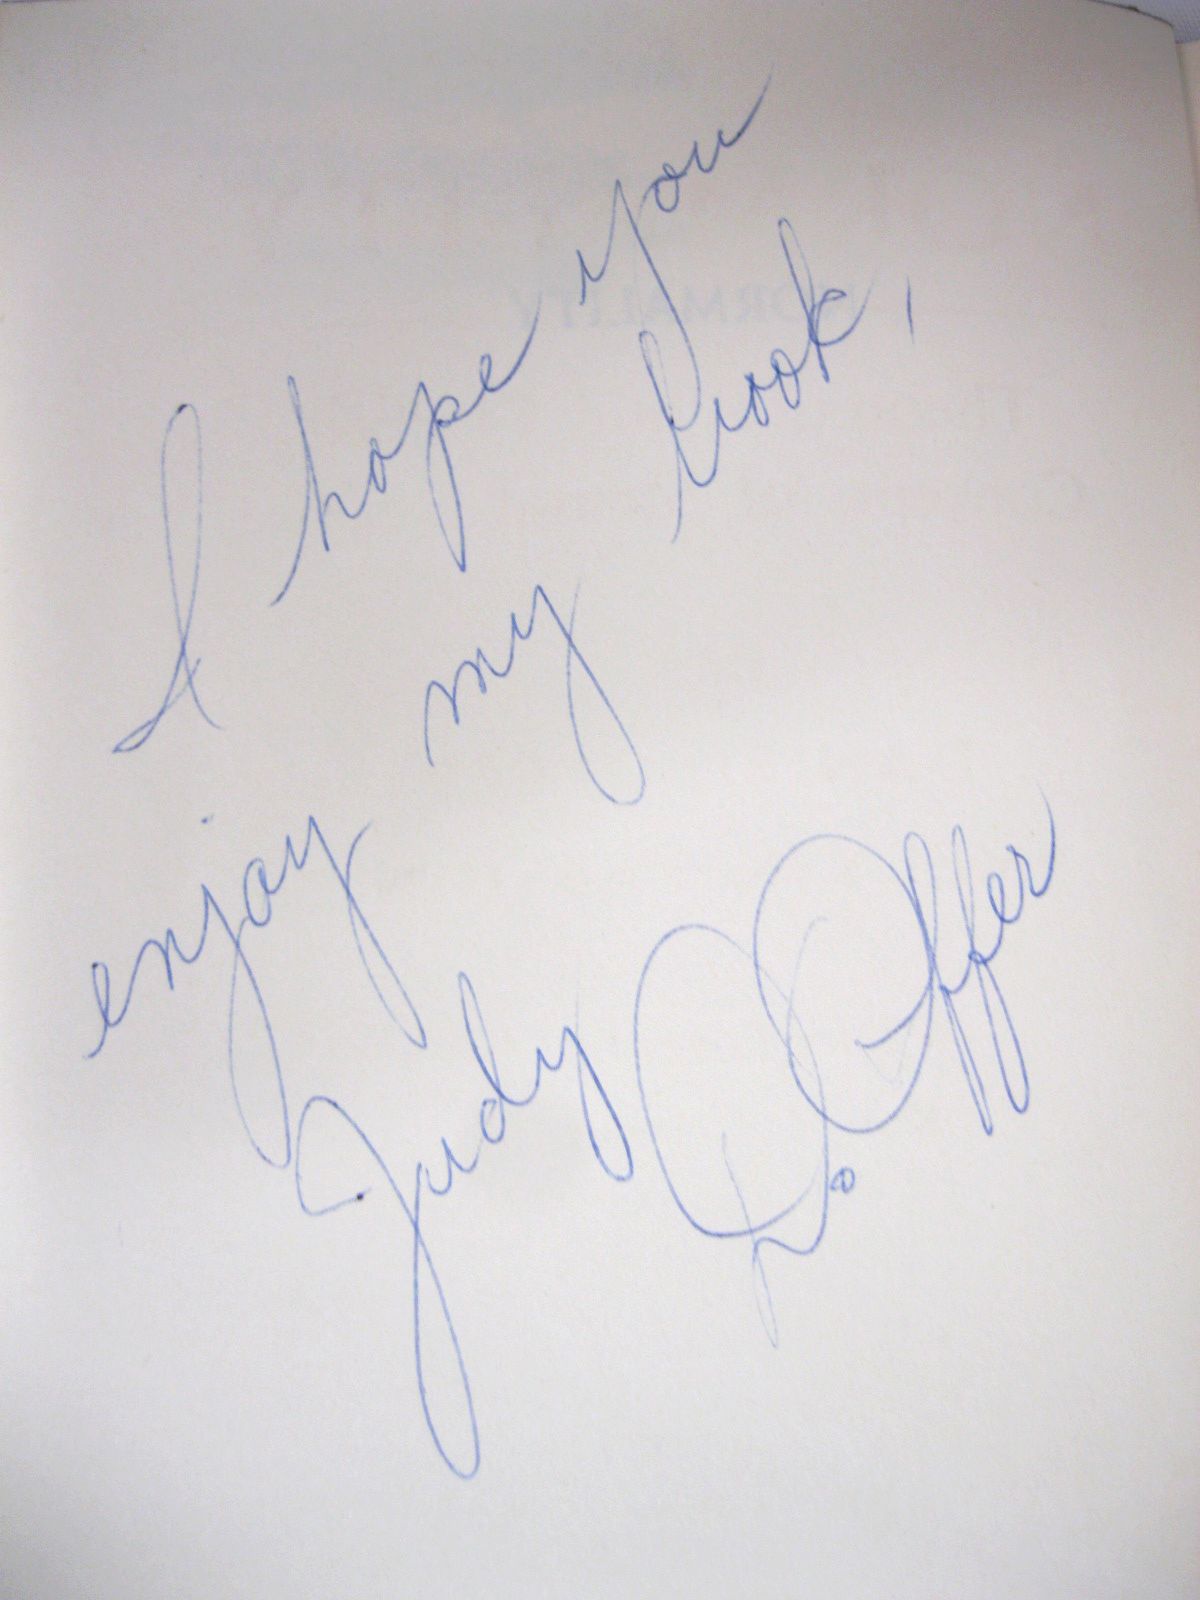 I hope you
enjoy my book,
Judy D. Offer